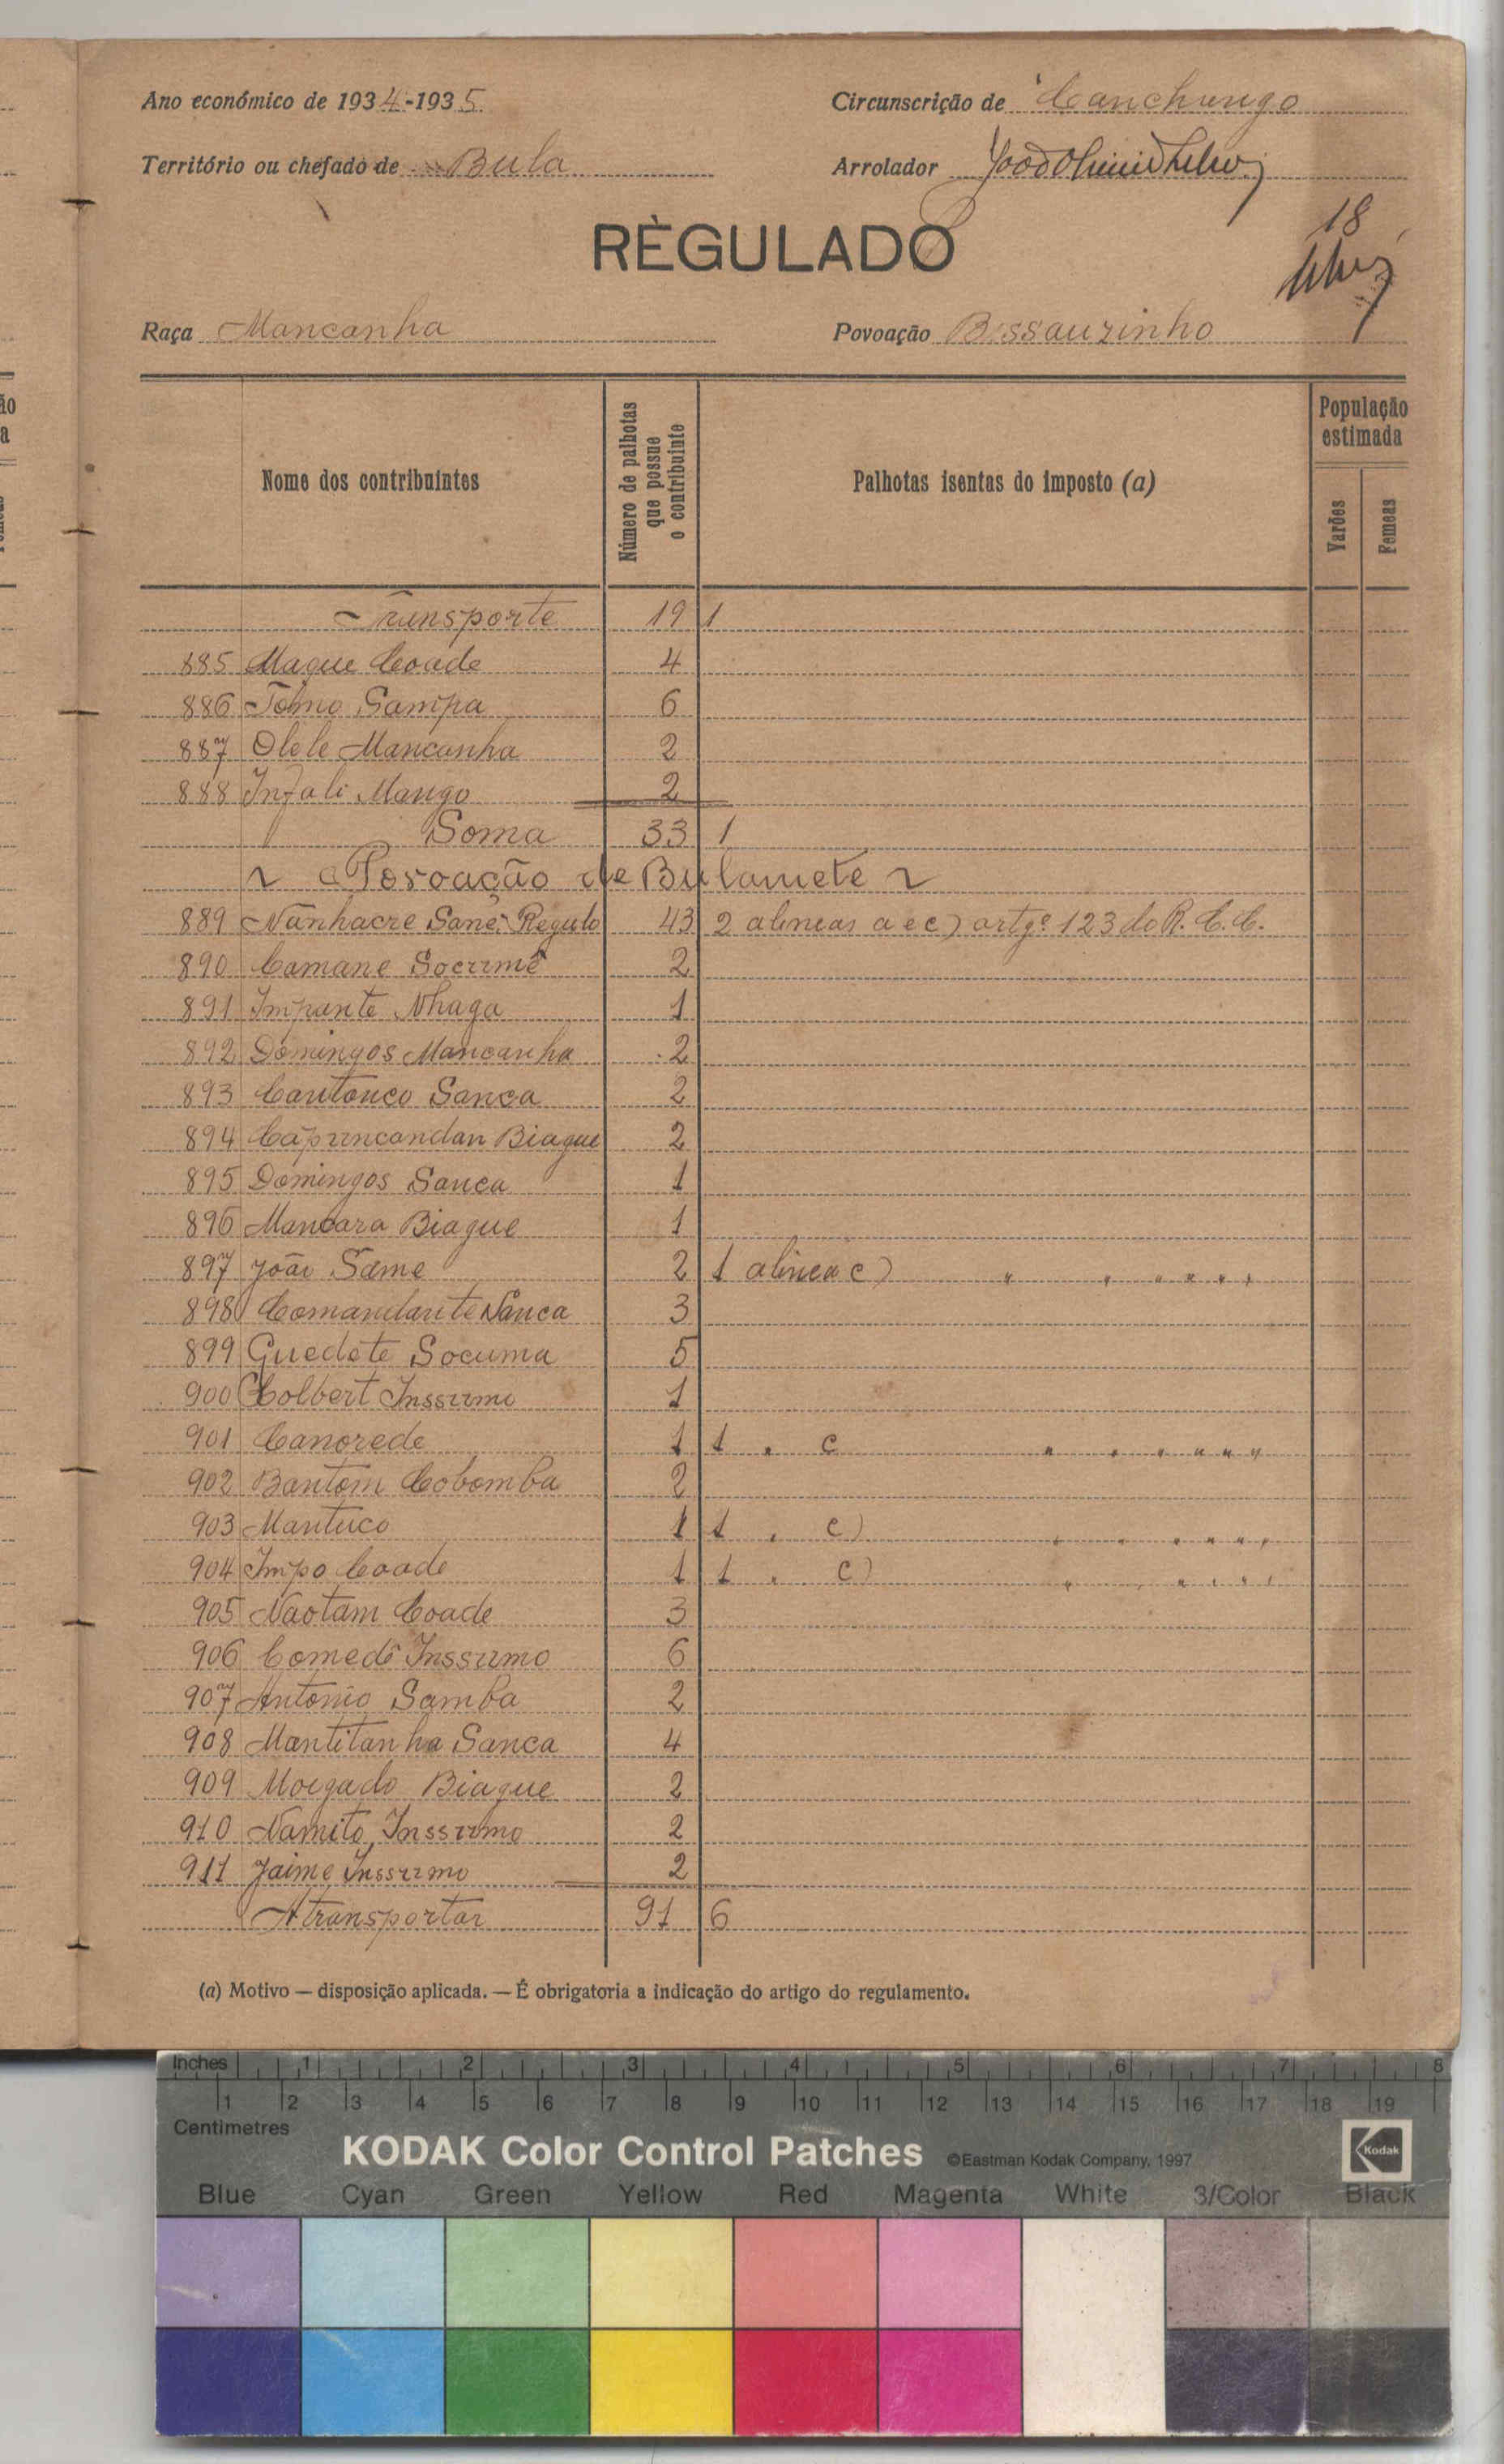 Ano económico de 1934-1935
Circunscrição de Canchungo
Território ou chefado de Bula
Arrolador
18
RÈGULADO
Raça Mancanha
Povoação Bissauzinho
Nome dos contribuintes
Número de palhotas que possue o contribuinte
Palhotas isentas do imposto (a)
População estimada
Varões
Femeas
Transporte 19 1
885 Maque Coade 4
886 Tomo Sampa 6
887 Olele Mancanha 2
888 Infali Mango 2
Soma 33 1
Povoação de Bulamete
889 Nanhacre Sanê, Regulo 43 2 alineas a e c) artgº 123 do R. C. C.
890 Camane Socumê 2
891 Impante Nhaga 1
892 Domingos Mancanha 2
893 Cantonco Sanca 2
894 Capuncandan Biague 2
895 Domingos Sanca 1
896 Mancara Biague 1
897 João Same 2 1 alinea c) " " " " " "
898 Comandante Nanca 3
899 Guedete Socuma 5
900 Colbert Inssumo 1
901 Canorede 1 1 " c " " " " " "
902 Bantom Cobomba 2
903 Mantuco 1 1 " c) " " " " " "
904 Impo Coade 1 1 " c) " " " " " "
905 Naotam Coade 3
906 Comedô Inssumo 6
907 Antonio Samba 2
908 Mantitanha Sanca 4
909 Morgado Biague 2
910 Namito Inssumo 2
911 Jaime Inssumo 2
A transportar 91 6
(a) Motivo — disposição aplicada. — É obrigatoria a indicação do artigo do regulamento.
Inches 1 2 3 4 5 6 7 8
1 2 3 4 5 6 7 8 9 10 11 12 13 14 15 16 17 18 19
Centimetres
KODAK Color Control Patches ©Eastman Kodak Company, 1997 Kodak
Blue Cyan Green Yellow Red Magenta White 3/Color Black